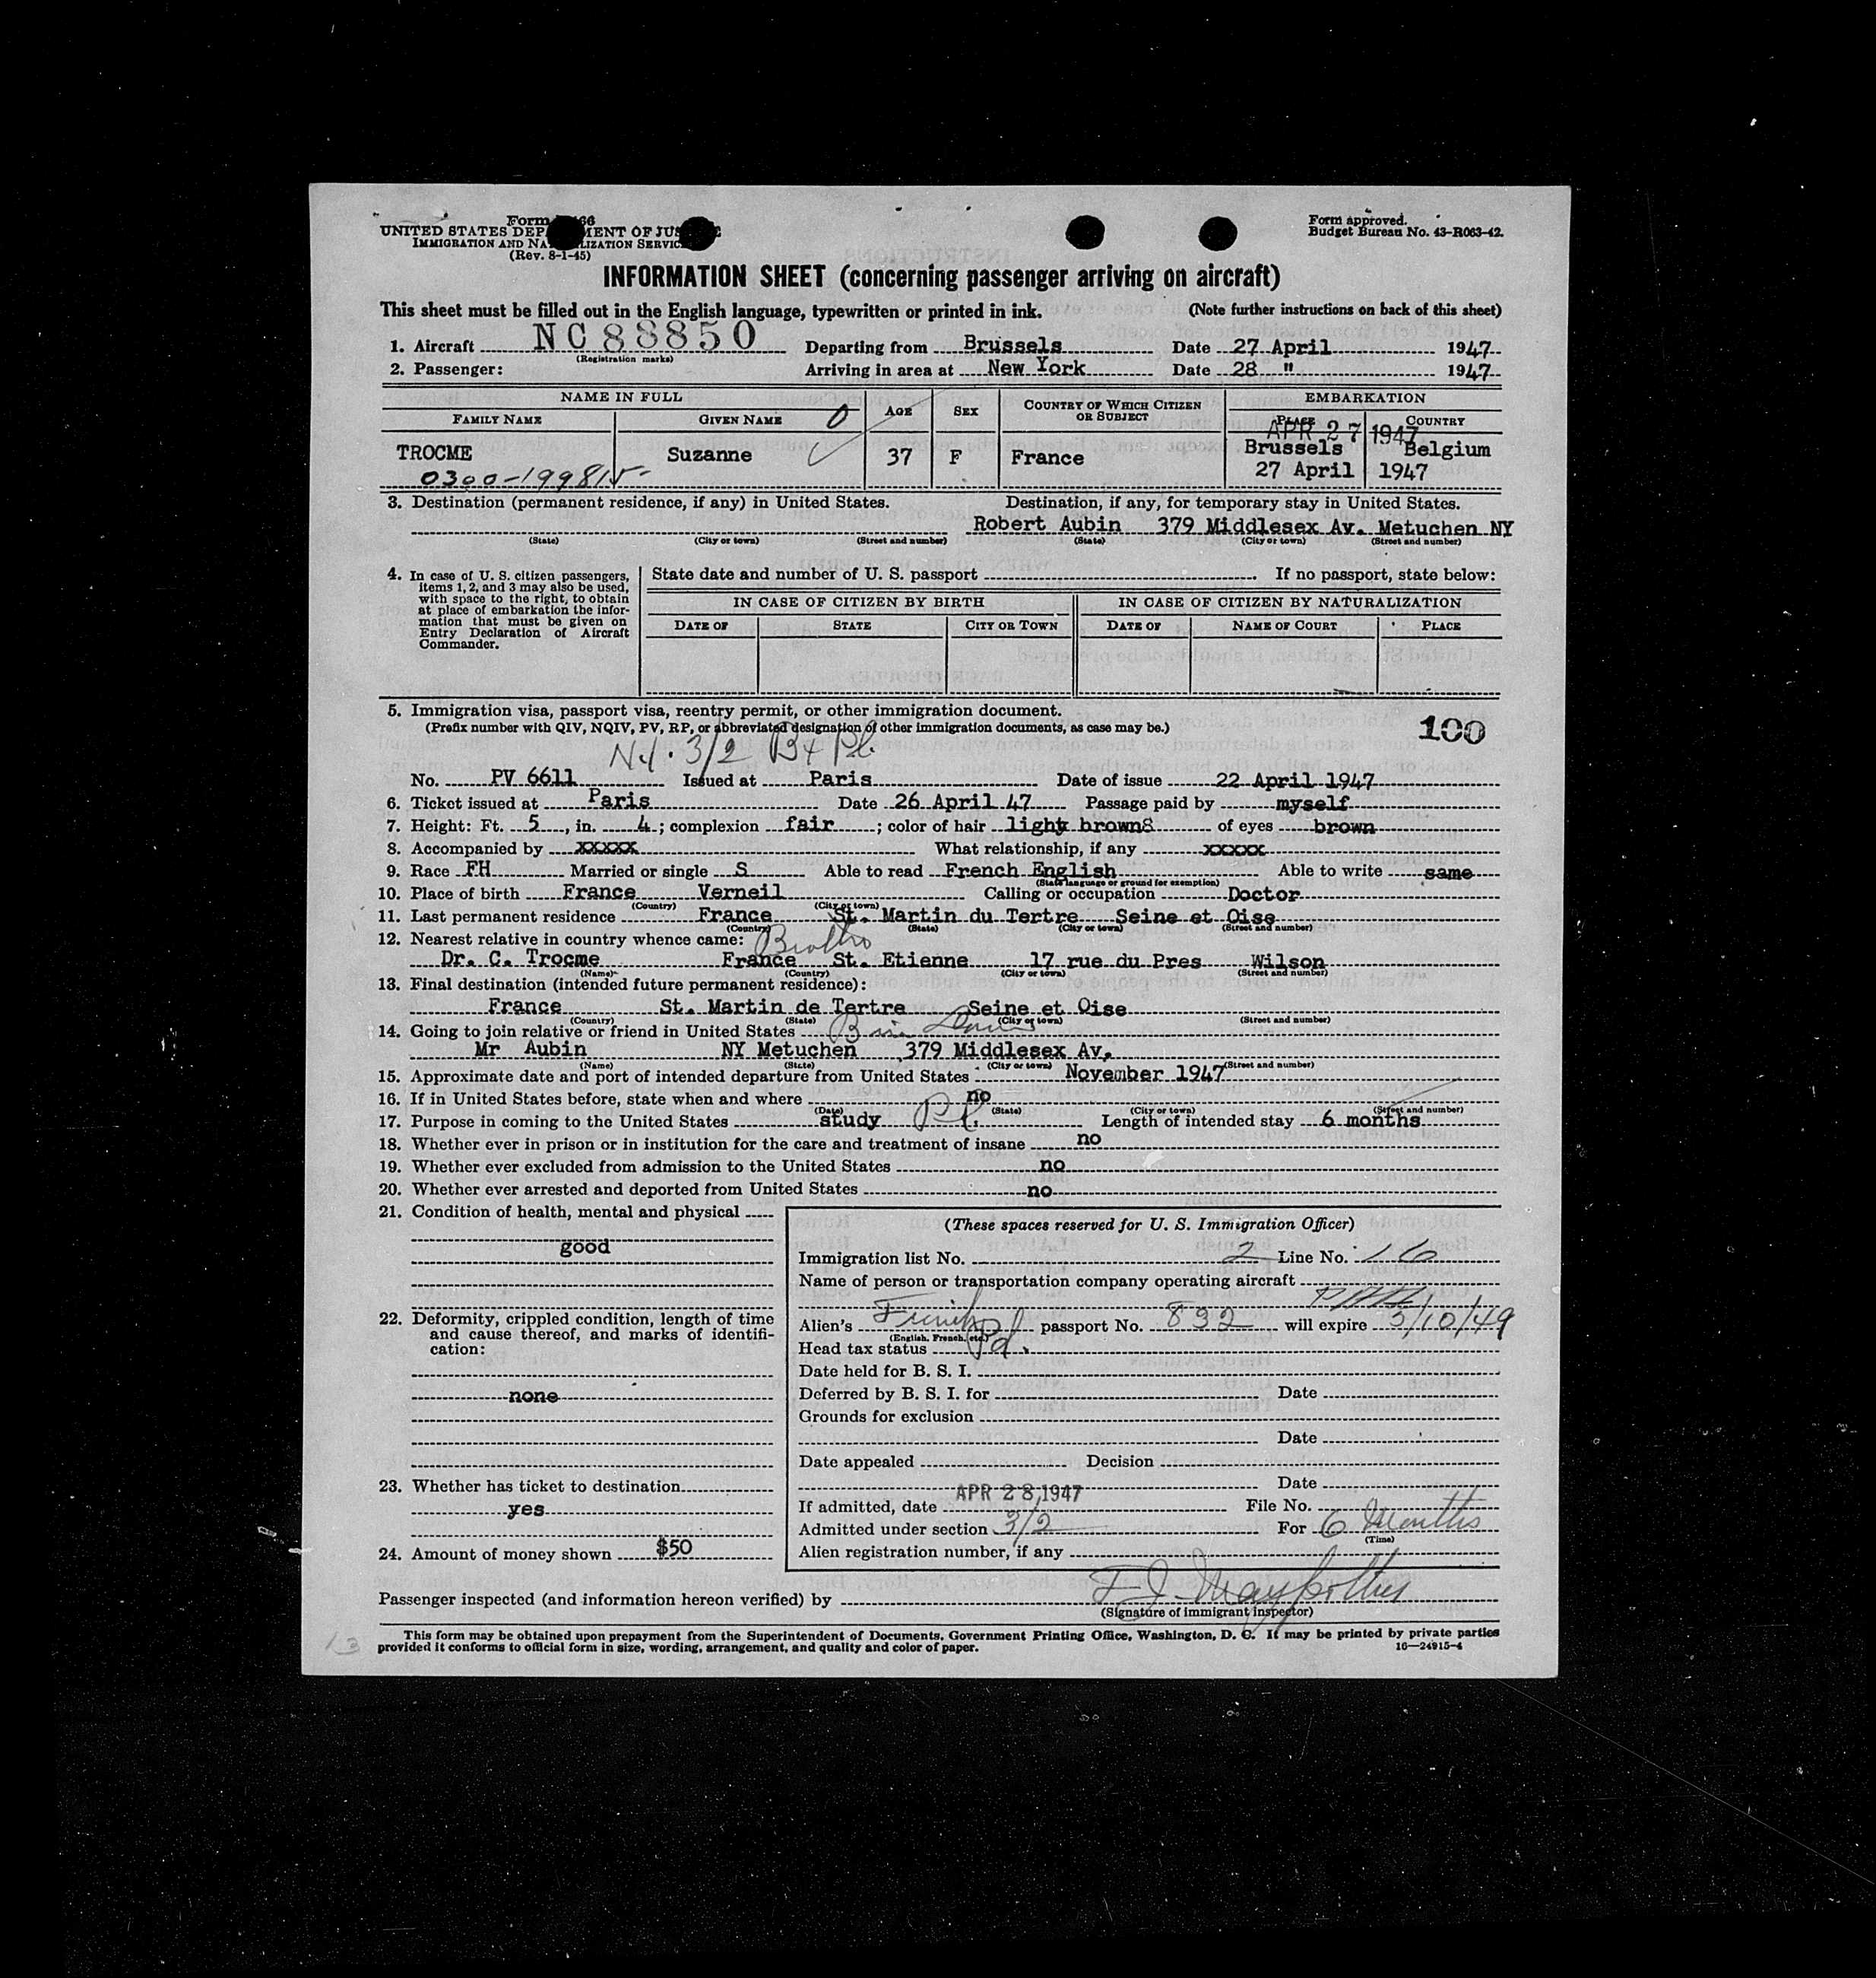 Form 66
UNITED STATES DEP MENT OF JUS
IMMIGRATION AND NA LIZATION SERVIC
(Rev. 8-1-45)
Form approved.
Budget Bureau No. 43-R063-42.
INFORMATION SHEET (concerning passenger arriving on aircraft)
This sheet must be filled out in the English language, typewritten or printed in ink. (Note further instructions on back of this sheet)
1. Aircraft NC88850 Departing from Brussels Date 27 April 1947
(Registration marks)
2. Passenger: Arriving in area at New York Date 28 " 1947
NAME IN FULL AGE SEX COUNTRY OF WHICH CITIZEN OR SUBJECT EMBARKATION
FAMILY NAME GIVEN NAME 0 PLACE COUNTRY
APR 27 1947
TROCME Suzanne 37 F France Brussels Belgium
0300-199815- 27 April 1947
3. Destination (permanent residence, if any) in United States. Destination, if any, for temporary stay in United States.
Robert Aubin 379 Middlesex Av. Metuchen NY
(State) (City or town) (Street and number) (State) (City or town) (Street and number)
4. In case of U. S. citizen passengers, items 1, 2, and 3 may also be used, with space to the right, to obtain at place of embarkation the information that must be given on Entry Declaration of Aircraft Commander.
State date and number of U. S. passport If no passport, state below:
IN CASE OF CITIZEN BY BIRTH IN CASE OF CITIZEN BY NATURALIZATION
DATE OF STATE CITY OR TOWN DATE OF NAME OF COURT PLACE
5. Immigration visa, passport visa, reentry permit, or other immigration document.
(Prefix number with QIV, NQIV, PV, RP, or abbreviated designation of other immigration documents, as case may be.) 100
3/2
No. PV 6611 Issued at Paris Date of issue 22 April 1947
6. Ticket issued at Paris Date 26 April 47 Passage paid by myself
7. Height: Ft. 5, in. 4; complexion fair; color of hair light brown of eyes brown
8. Accompanied by xxxxx What relationship, if any xxxxx
9. Race FH Married or single S Able to read French English Able to write same
(State language or ground for exemption)
10. Place of birth France Verneil Calling or occupation Doctor
(Country) (City or town)
11. Last permanent residence France St. Martin du Tertre Seine et Oise
(Country) (State) (City or town) (Street and number)
12. Nearest relative in country whence came: Brother
Dr. C. Trocme France St. Etienne 17 rue du Pres Wilson
(Name) (Country) (City or town) (Street and number)
13. Final destination (intended future permanent residence):
France St. Martin de Tertre Seine et Oise
(Country) (State) (City or town) (Street and number)
14. Going to join relative or friend in United States
Mr Aubin NY Metuchen 379 Middlesex Av.
(Name) (State) (City or town) (Street and number)
15. Approximate date and port of intended departure from United States November 1947
16. If in United States before, state when and where no
(Date) (State) (City or town) (Street and number)
17. Purpose in coming to the United States study Pl. Length of intended stay 6 months
18. Whether ever in prison or in institution for the care and treatment of insane no
19. Whether ever excluded from admission to the United States no
20. Whether ever arrested and deported from United States no
21. Condition of health, mental and physical
good
22. Deformity, crippled condition, length of time and cause thereof, and marks of identification:
none
23. Whether has ticket to destination
yes
24. Amount of money shown $50
(These spaces reserved for U. S. Immigration Officer)
Immigration list No. 2 Line No. 16
Name of person or transportation company operating aircraft
Alien's French passport No. 832 will expire 3/10/49
(English, French, etc.)
Head tax status Pd.
Date held for B. S. I.
Deferred by B. S. I. for Date
Grounds for exclusion
Date
Date appealed Decision
Date
If admitted, date APR 28, 1947 File No.
Admitted under section 3/2 For 6 Months
(Time)
Alien registration number, if any
Passenger inspected (and information hereon verified) by
(Signature of immigrant inspector)
This form may be obtained upon prepayment from the Superintendent of Documents, Government Printing Office, Washington, D. C. It may be printed by private parties
provided it conforms to official form in size, wording, arrangement, and quality and color of paper. 16—24915-4
13